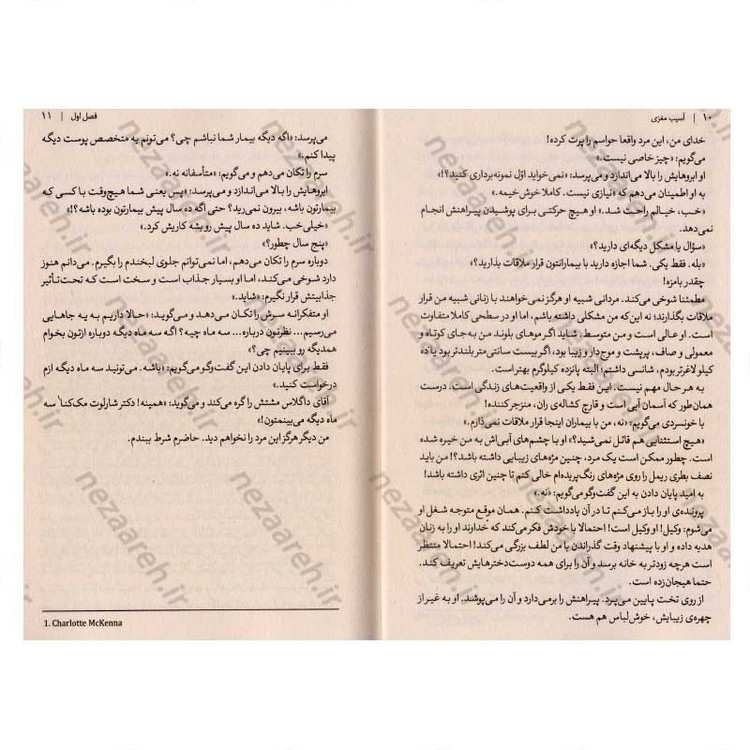 ۱۰ | آسیب مغزی
خدای من، این مرد واقعا حواسم را پرت کرده!
می‌گویم: «چیز خاصی نیست.»
او ابروهایش را بالا می‌اندازد و می‌پرسد: «نمی‌خواید اوّل نمونه‌برداری کنید؟!»
به او اطمینان می‌دهم که «نیازی نیست. کاملا خوش‌خیمه.»
«خب، خیالم راحت شد.» او هیچ حرکتی برای پوشیدن پیراهنش انجام
نمی‌دهد.
«سؤال یا مشکل دیگه‌ای دارید؟»
«بله. فقط یکی. شما اجازه دارید با بیمارانتون قرار ملاقات بذارید؟»
چقدر بامزه!
مطمئنا شوخی می‌کند. مردانی شبیه او هرگز نمی‌خواهند با زنانی شبیه من قرار
ملاقات بگذارند؛ نه این‌که من مشکلی داشته باشم، اما او در سطحی کاملا متفاوت
است. او عالی است و من متوسط. شاید اگر موهای بلوند من به جای کوتاه و
معمولی و صاف، پرپشت و موج‌دار و زیبا بود، اگر بیست سانتی‌متر بلندتر بود یا ده
کیلو لاغرتر بودم، شانسی داشتم؛ البته پانزده کیلوگرم بهتر است.
به هر حال مهم نیست. این فقط یکی از واقعیت‌های زندگی است. درست
همان‌طور که آسمان آبی است و قارچ کشاله‌ی ران، منزجرکننده!
با خونسردی می‌گویم: «نه، من با بیماران اینجا قرار ملاقات نمی‌ذارم.»
«هیچ استثنایی هم قائل نمی‌شید؟» او با چشم‌های آبی‌اش به من خیره شده
است. چطور ممکن است یک مرد، چنین مژه‌های زیبایی داشته باشد؟! من باید
نصف بطری ریمل را روی مژه‌های رنگ‌پریده‌ام خالی کنم تا چنین اثری داشته باشد!
به امید پایان دادن به این گفت‌وگو می‌گویم: «نه.»
پرونده‌ی او را باز می‌کنم تا در آن یادداشت کنم. همان موقع متوجه شغل او
می‌شوم: وکیل! او وکیل است! احتمالا با خودش فکر می‌کند که خداوند او را به زنان
هدیه داده و او با پیشنهاد وقت گذراندن با من لطف بزرگی می‌کند! احتمالا منتظر
است هرچه زودتر به خانه برسد و آن را برای همه دوست‌دخترهایش تعریف کند.
حتما هیجان‌زده است.
از روی تخت پایین می‌پرد. پیراهنش را برمی‌دارد و آن را می‌پوشد. او به غیر از
چهره‌ی زیبایش، خوش‌لباس هم هست.
فصل اول | ۱۱
می‌پرسد: «اگه دیگه بیمار شما نباشم چی؟ می‌تونم یه متخصص پوست دیگه
پیدا کنم.»
سرم را تکان می‌دهم و می‌گویم: «متأسفانه نه.»
ابروهایش را بالا می‌اندازد و می‌پرسد: «پس یعنی شما هیچ‌وقت با کسی که
بیمارتون باشه، بیرون نمی‌رید؟ حتی اگه ده سال پیش بیمارتون بوده باشه؟!»
«خیلی‌خب. شاید ده سال پیش رو بشه کاریش کرد.»
«پنج سال چطور؟»
دوباره سرم را تکان می‌دهم، اما نمی‌توانم جلوی لبخندم را بگیرم. می‌دانم هنوز
دارد شوخی می‌کند، اما او بسیار جذاب است و سخت است که تحت‌تأثیر
جذابیتش قرار نگیرم: «شاید.»
او متفکرانه سرش را تکان می‌دهد و می‌گوید: «حالا داریم به یه جاهایی
می‌رسیم... نظرتون درباره... سه ماه چیه؟ اگه سه ماه دیگه دوباره ازتون بخوام
همدیگه رو ببینیم چی؟»
فقط برای پایان دادن این گفت‌وگو می‌گویم: «باشه. می‌تونید سه ماه دیگه ازم
درخواست کنید.»
آقای داگلاس مشتش را گره می‌کند و می‌گوید: «همینه! دکتر شارلوت مک‌کنا¹ سه
ماه دیگه می‌بینمتون!»
من دیگر هرگز این مرد را نخواهم دید. حاضرم شرط ببندم.
1. Charlotte McKenna
nezaareh.ir